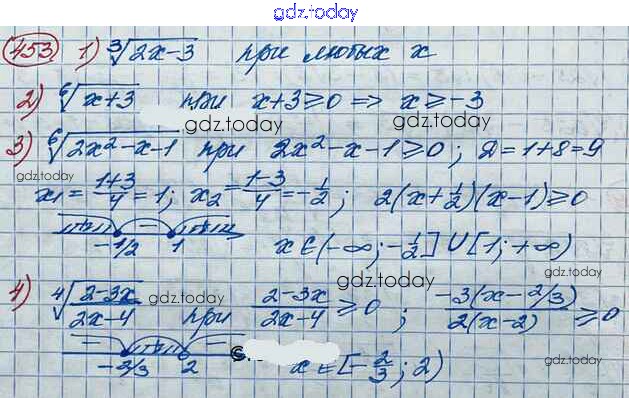 gdz.today
453 1) ∛(2x-3) при любых x
2) ⁶√(x+3) при x+3≥0 => x≥-3
gdz.today gdz.today
3) ⁶√(2x²-x-1) при 2x²-x-1≥0; Д=1+8=9
gdz.today
x₁=(1+3)/4=1; x₂=(1-3)/4=-1/2; 2(x+1/2)(x-1)≥0
+ - +
-1/2 1 x∈(-∞;-1/2]∪[1;+∞)
gdz.today
gdz.today gdz.today
4) ⁴√((2-3x)/(2x-4)) при (2-3x)/(2x-4)≥0; (-3(x-2/3))/(2(x-2))≥0
- + -
-2/3 2 x∈[-2/3;2)
gdz.today